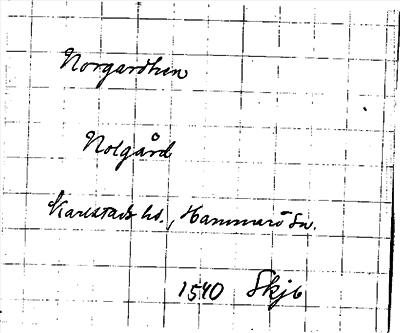 Norgardhen
Nolgård
Karlstads hd., Hammarö sn.
1540 Skjb